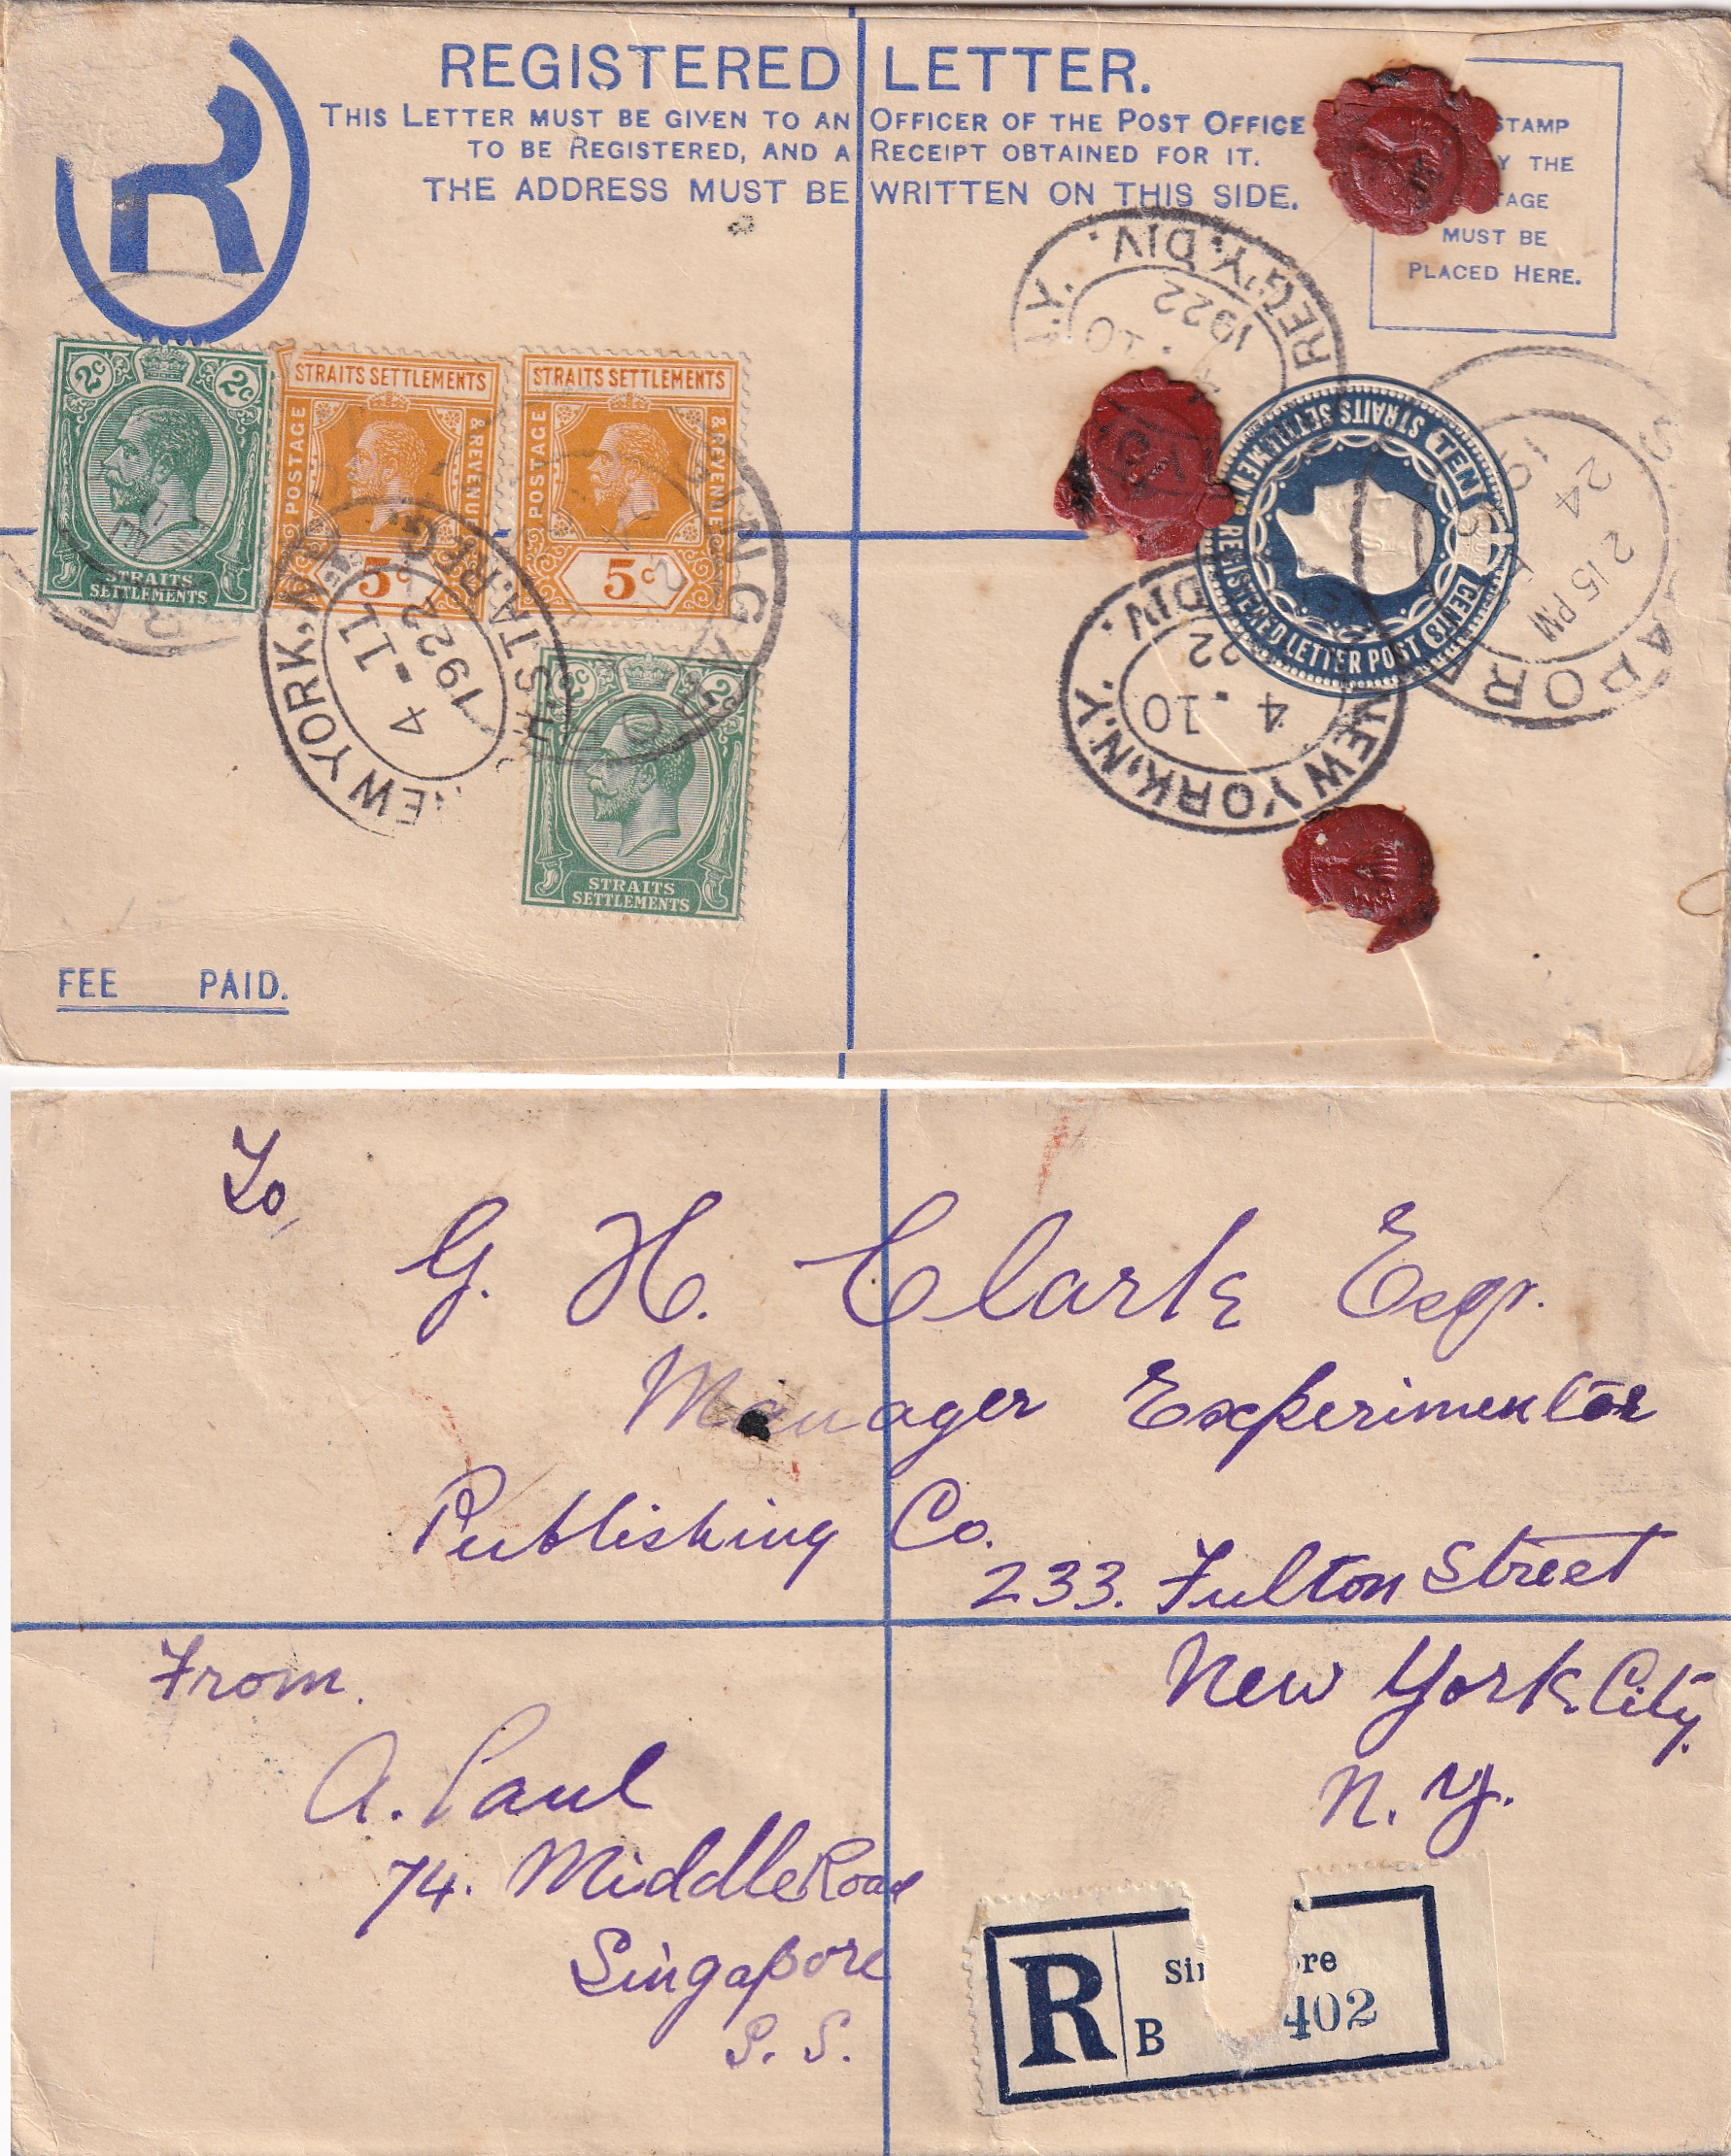 REGISTERED LETTER.
THIS LETTER MUST BE GIVEN TO AN OFFICER OF THE POST OFFICE
TO BE REGISTERED, AND A RECEIPT OBTAINED FOR IT.
THE ADDRESS MUST BE WRITTEN ON THIS SIDE.
R
STAMP
THE
MUST BE
PLACED HERE.
REG'Y. DIV.
1922
2c 2c
STRAITS SETTLEMENTS
STRAITS SETTLEMENTS
POSTAGE & REVENUE
5c
STRAITS SETTLEMENTS
POSTAGE & REVENUE
5c
NEW YORK, N.Y.
STA. REG.
4-11
1922
2c 2c
STRAITS SETTLEMENTS
STRAITS SETTLEMENTS REGISTERED LETTER POST
TEN CENTS
24
2 15 PM
NEW YORK, N.Y. DIV.
4-10
22
FEE PAID.
To,
G. H. Clark Esqr.
Manager Experimenter
Publishing Co.
233. Fulton Street
New York City
N. Y.
From.
A. Paul
74. Middle Road
Singapore
S. S.
R
B
402